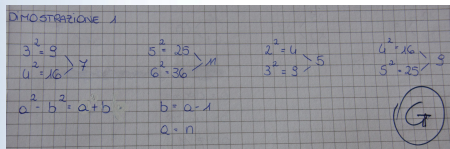 DIMOSTRAZIONE 1
3² = 9
4² = 16 > 7
5² = 25
6² = 36 > 11
2² = 4
3² = 9 > 5
4² = 16
5² = 25 > 9
a² - b² = a + b
b = a - 1
a = n
G